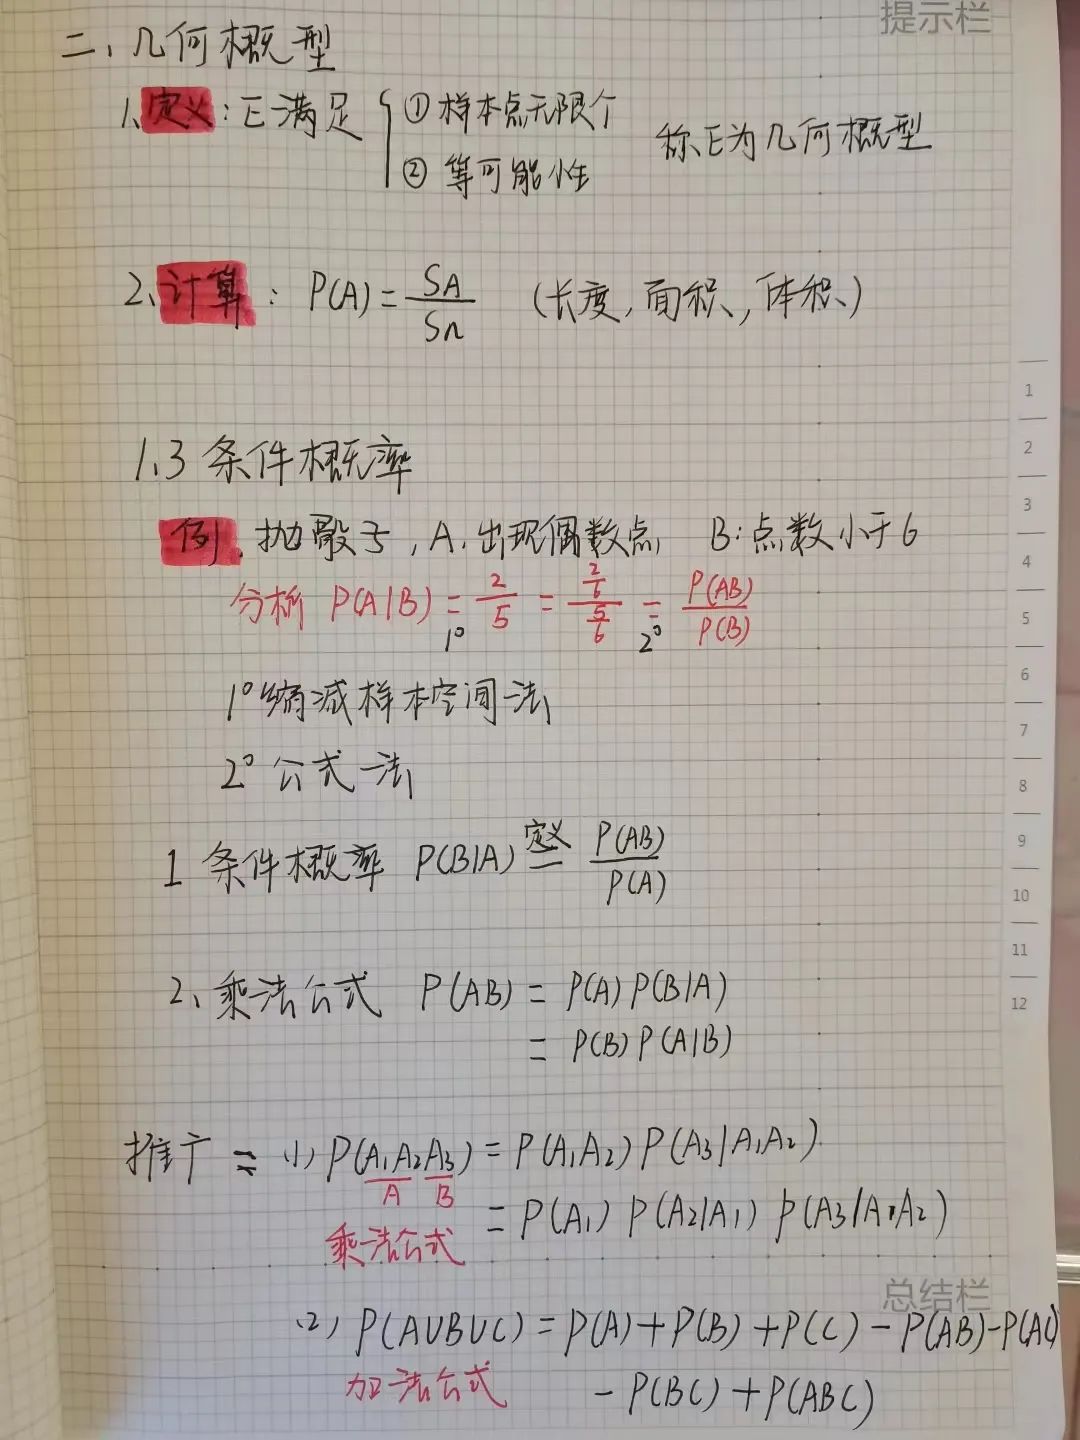 提示栏
二、几何概型
1、定义：E满足 { ① 样本点无限个
② 等可能性 称E为几何概型
2、计算：P(A)=SA/SΩ （长度，面积，体积）
1.3 条件概率
例、抛骰子，A.出现偶数点 B:点数小于6
分析 P(A|B) = 2/5 = (2/6)/(5/6) = P(AB)/P(B)
1° 2°
1°缩减样本空间法
2°公式法
1 条件概率 P(B|A) 定义= P(AB)/P(A)
2、乘法公式 P(AB) = P(A)P(B|A)
= P(B)P(A|B)
推广 = (1) P(A₁A₂A₃) = P(A₁A₂)P(A₃|A₁A₂)
A B
= P(A₁) P(A₂|A₁) P(A₃|A₁A₂)
乘法公式
总结栏
(2) P(A∪B∪C) = P(A)+P(B)+P(C)-P(AB)-P(AC)
加法公式 -P(BC)+P(ABC)
1
2
3
4
5
6
7
8
9
10
11
12